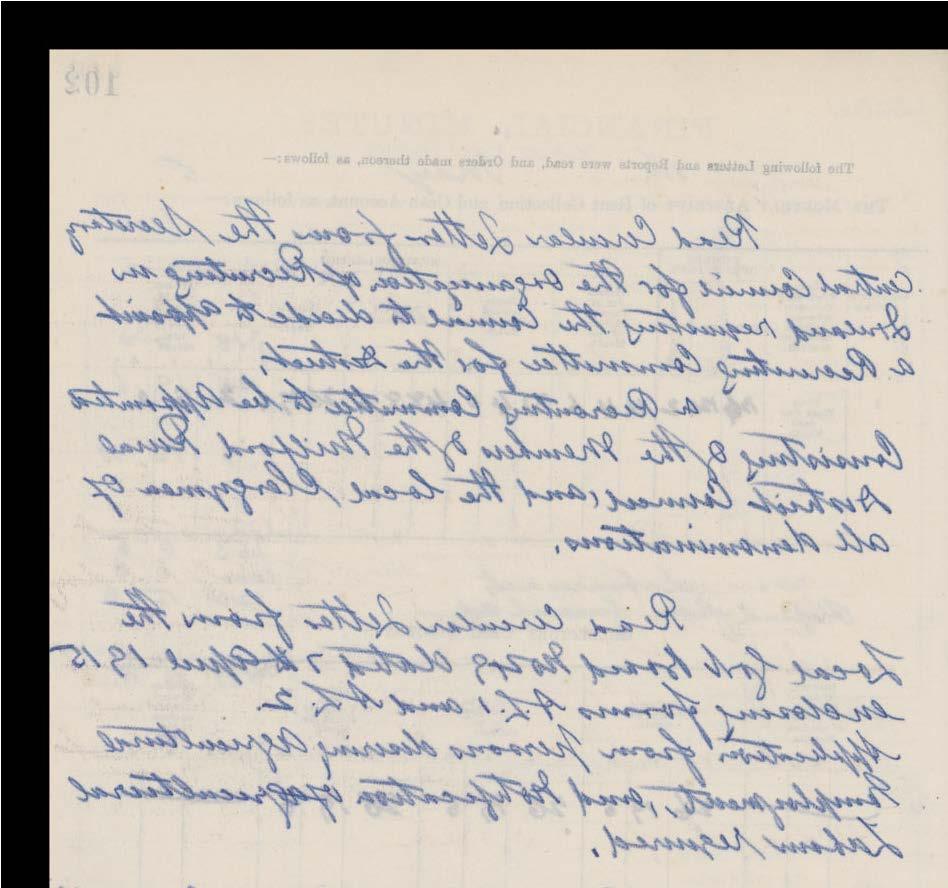 102
The following Letters and Reports were read, and Orders made thereon, as follows:—
Read Circular Letter from the Secretary
Central Council for the Organization of Recruiting in
Ireland requesting the Council to decide to appoint
a Recruiting Committee for the District.
a Recruiting Committee to be Appointed
Consisting of the Members of the Milford Rural
District Council and the local Clergymen of
all denominations.
Read Circular Letter from the
Local Govt Board dated 7th April 1915
enclosing forms A.L. 1 and A.L. 2.
Application from persons desiring Agricultural
Employment, and Notification of Agricultural
Labour required.